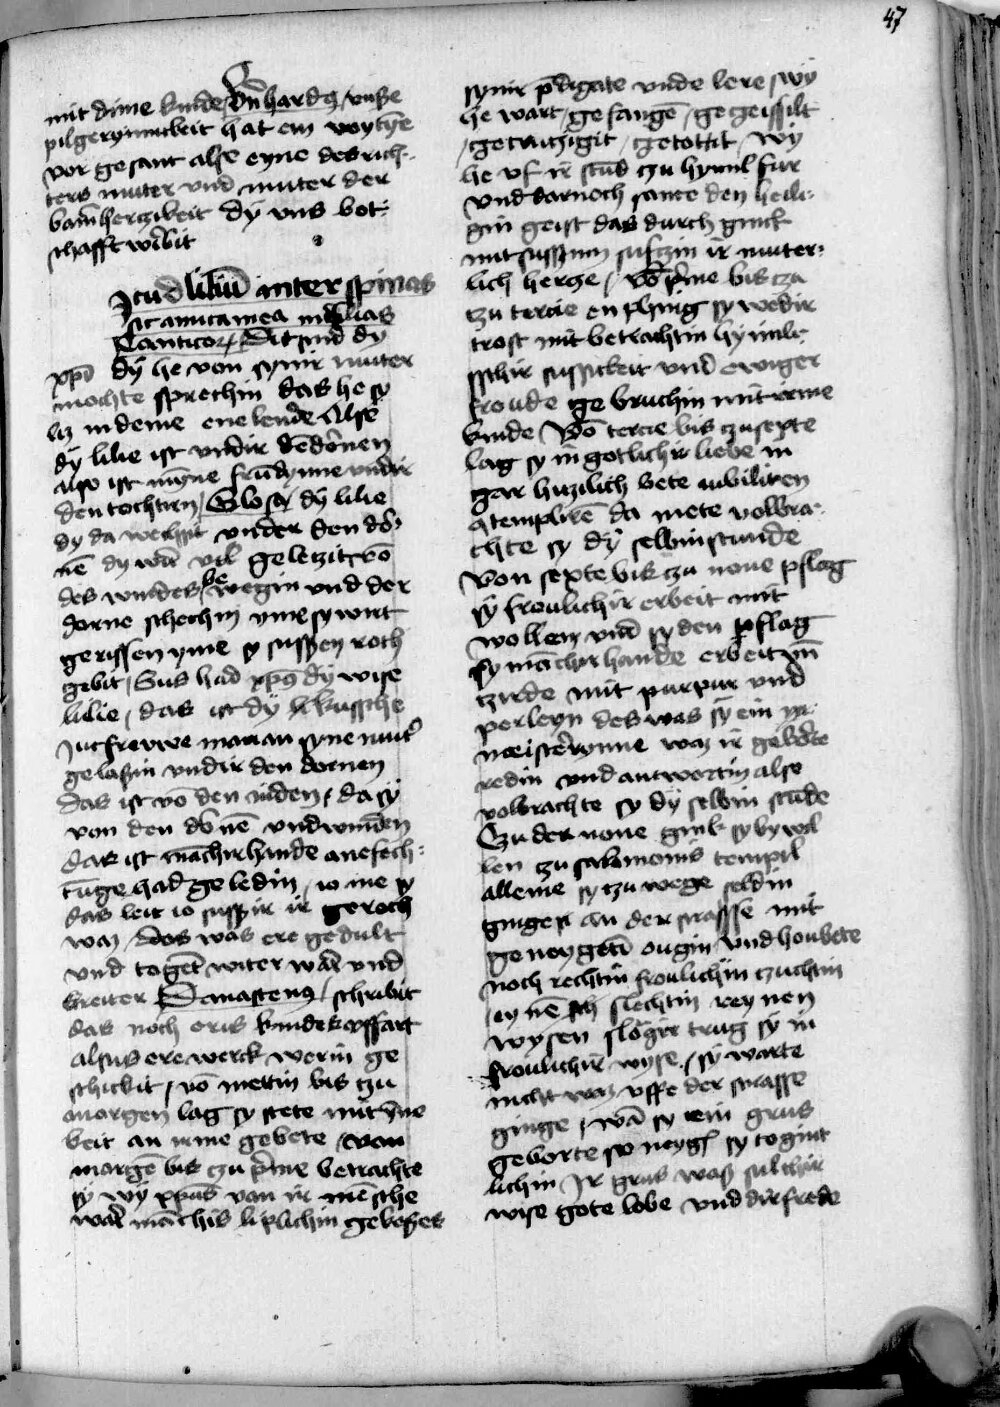 47
mit dime kinde Bn̄hardꝰ / vnsze
pilgerymmekeit hat ein voytȳe
vor gesant alse eyne des rich-
ters muter vnd muter der
bam̄herzikeit dy vns bot-
schafft wirbit
Sicud liliū inter spinas
sic amica mea in filias
Canticoꝝ Dit sind dy
dy he von synir muter
xp̄i
mochte sprechin das he sy
lis in deme enelende Alse
dy lilie ist vndir dē dornen
also ist myne frūdynne vndir
den tochtirn / Glosa dy lilie
dy da wechsit vnder den dor-
nē dy wirt vil geletzit vō
des windes bewegin vnd der
dorne stechin yme sy wirt
gerissen yme sy sussyen roch
gebit / Sus had xp̄s dy wise
lilie / das ist dy kussche
Jucfrevwe marian syne mut̄
gelasin vndir den dornen
das ist vō den iuden / da sy
von den dornē vnd winden
das ist mācherhande anefech-
tūge had geledin / io me sy
das leit io suszir ir geroch
waz / Das was ere gedult
vnd togēt witer wart vnd
breiter Damascenꝰ / schribit
das noch eris kindes vffart
alsus ere werck worin ge
schickit / vō mettin bis tzu
morgen lag sy stete mit yne
keit an irme gebete / von
morgē bis czu p̄me betrachte
sy wy xpūs von ir mēsche
wart māchis liplichin gebeszes
synir p̄digate vnde lere / wy
he wart / gefangē / gegeissilt
/ gecruczigit / getottit / wy
he vf ir stūd tzu hymil fur
vnd darnoch sante den heili-
gin geist das durch ginck
mit sussymm sufczin ir muter-
lich hercze / Vō p̄me bis tza
tzu tercie enphing sy wedir
trost mit betrachtin hymmle-
sschir sussickeit vnd ewiger
froude gebruchin mit irme
kinde / Vō tercie bis tzu sexte
lag sy in gotlichir liebe in
gar hitzilich bete iubiliren
qtemplirē da mete volbra-
chte sy dy selbin stunde
Von sexte bis tzu none pflag
sy froulichir erbeit mit
wollen vnd syden pflag
sy mācherhande erbeit vn̄
tzirde mit purpur vnd
perleyn des was sy ein
meisterynne waz ir geborte
redin vnd antwortin alse
volbrachte sy dy selbin stūde
Tzu der none gink sy bywil
len tzu salomonis tempil
alleine sy tzu wege seldin
gingen an der strassse mit
geneygetī ougin vnd houbete
noch rechtin froulichin tzuchtin
/ eynē slechtin reynen
wysen sloger trug sy in
froulichir wyse / sy warte
nicht wer vffe der strasse
ginge / wā sy ein grus
geborte so neygt sy togint
lichin Ir grus was sulchir
wise gote lobe vnd dir frede